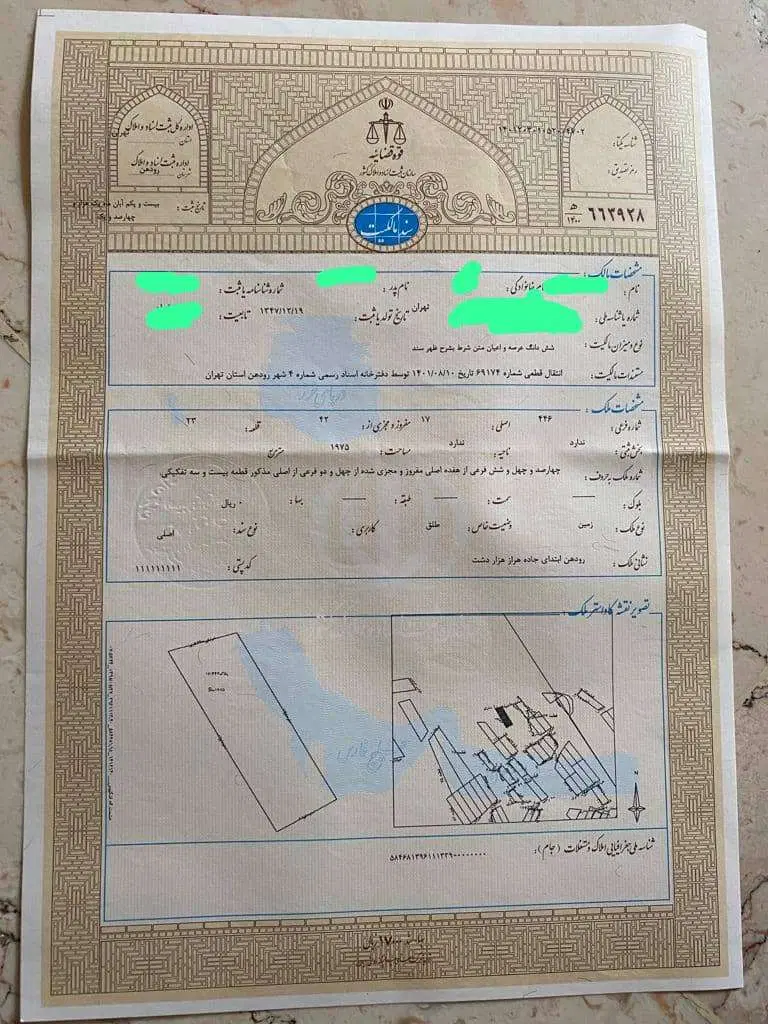 قوه قضائیه
سازمان ثبت اسناد و املاک کشور
سند مالکیت
اداره کل ثبت اسناد و املاک
استان تهران
اداره ثبت اسناد و املاک
شهرستان رودهن
تاریخ ثبت : بیست و یکم آبان ماه یک هزار و
چهارصد و یک
شناسه یکتا :
رمز تصدیق :
۶۶۳۹۲۸ ه‍ ۱۴۰۰
مشخصات مالک :
نام : نام خانوادگی : نام پدر : شماره شناسنامه یا ثبت :
شماره یا شناسه ملی : تهران تاریخ تولد یا ثبت : ۱۳۴۷/۱۲/۱۹ تابعیت :
نوع و میزان مالکیت : شش دانگ عرصه و اعیان متن شرط بشرح ظهر سند
مستندات مالکیت : انتقال قطعی شماره ۶۹۱۷۴ تاریخ ۱۴۰۱/۰۸/۱۰ توسط دفترخانه اسناد رسمی شماره ۴ شهر رودهن استان تهران
مشخصات ملک :
شماره فرعی : ۴۴۶ اصلی : ۱۷ مفروز و مجزی از : ۴۲ قطعه : ۲۳
بخش ثبتی : ندارد ناحیه : ندارد مساحت : ۱۹۷۵ مترمربع
شماره ملک به حروف : چهارصد و چهل و شش فرعی از هفده اصلی مفروز و مجزی شده از چهل و دو فرعی از اصلی مذکور قطعه بیست و سه تفکیکی
بلوک : سمت : طبقه : بها : ۰ ریال
نوع ملک : زمین وضعیت خاص : طلق کاربری : نوع سند : اصلی
نشانی ملک : رودهن ابتدای جاده هراز هزار دشت کد پستی : ۱۱۱۱۱۱۱۱۱۱
تصویر نقشه کاداستر ملک :
خلیج فارس
شناسه ملی جغرافیایی املاک و مستغلات (جام) :